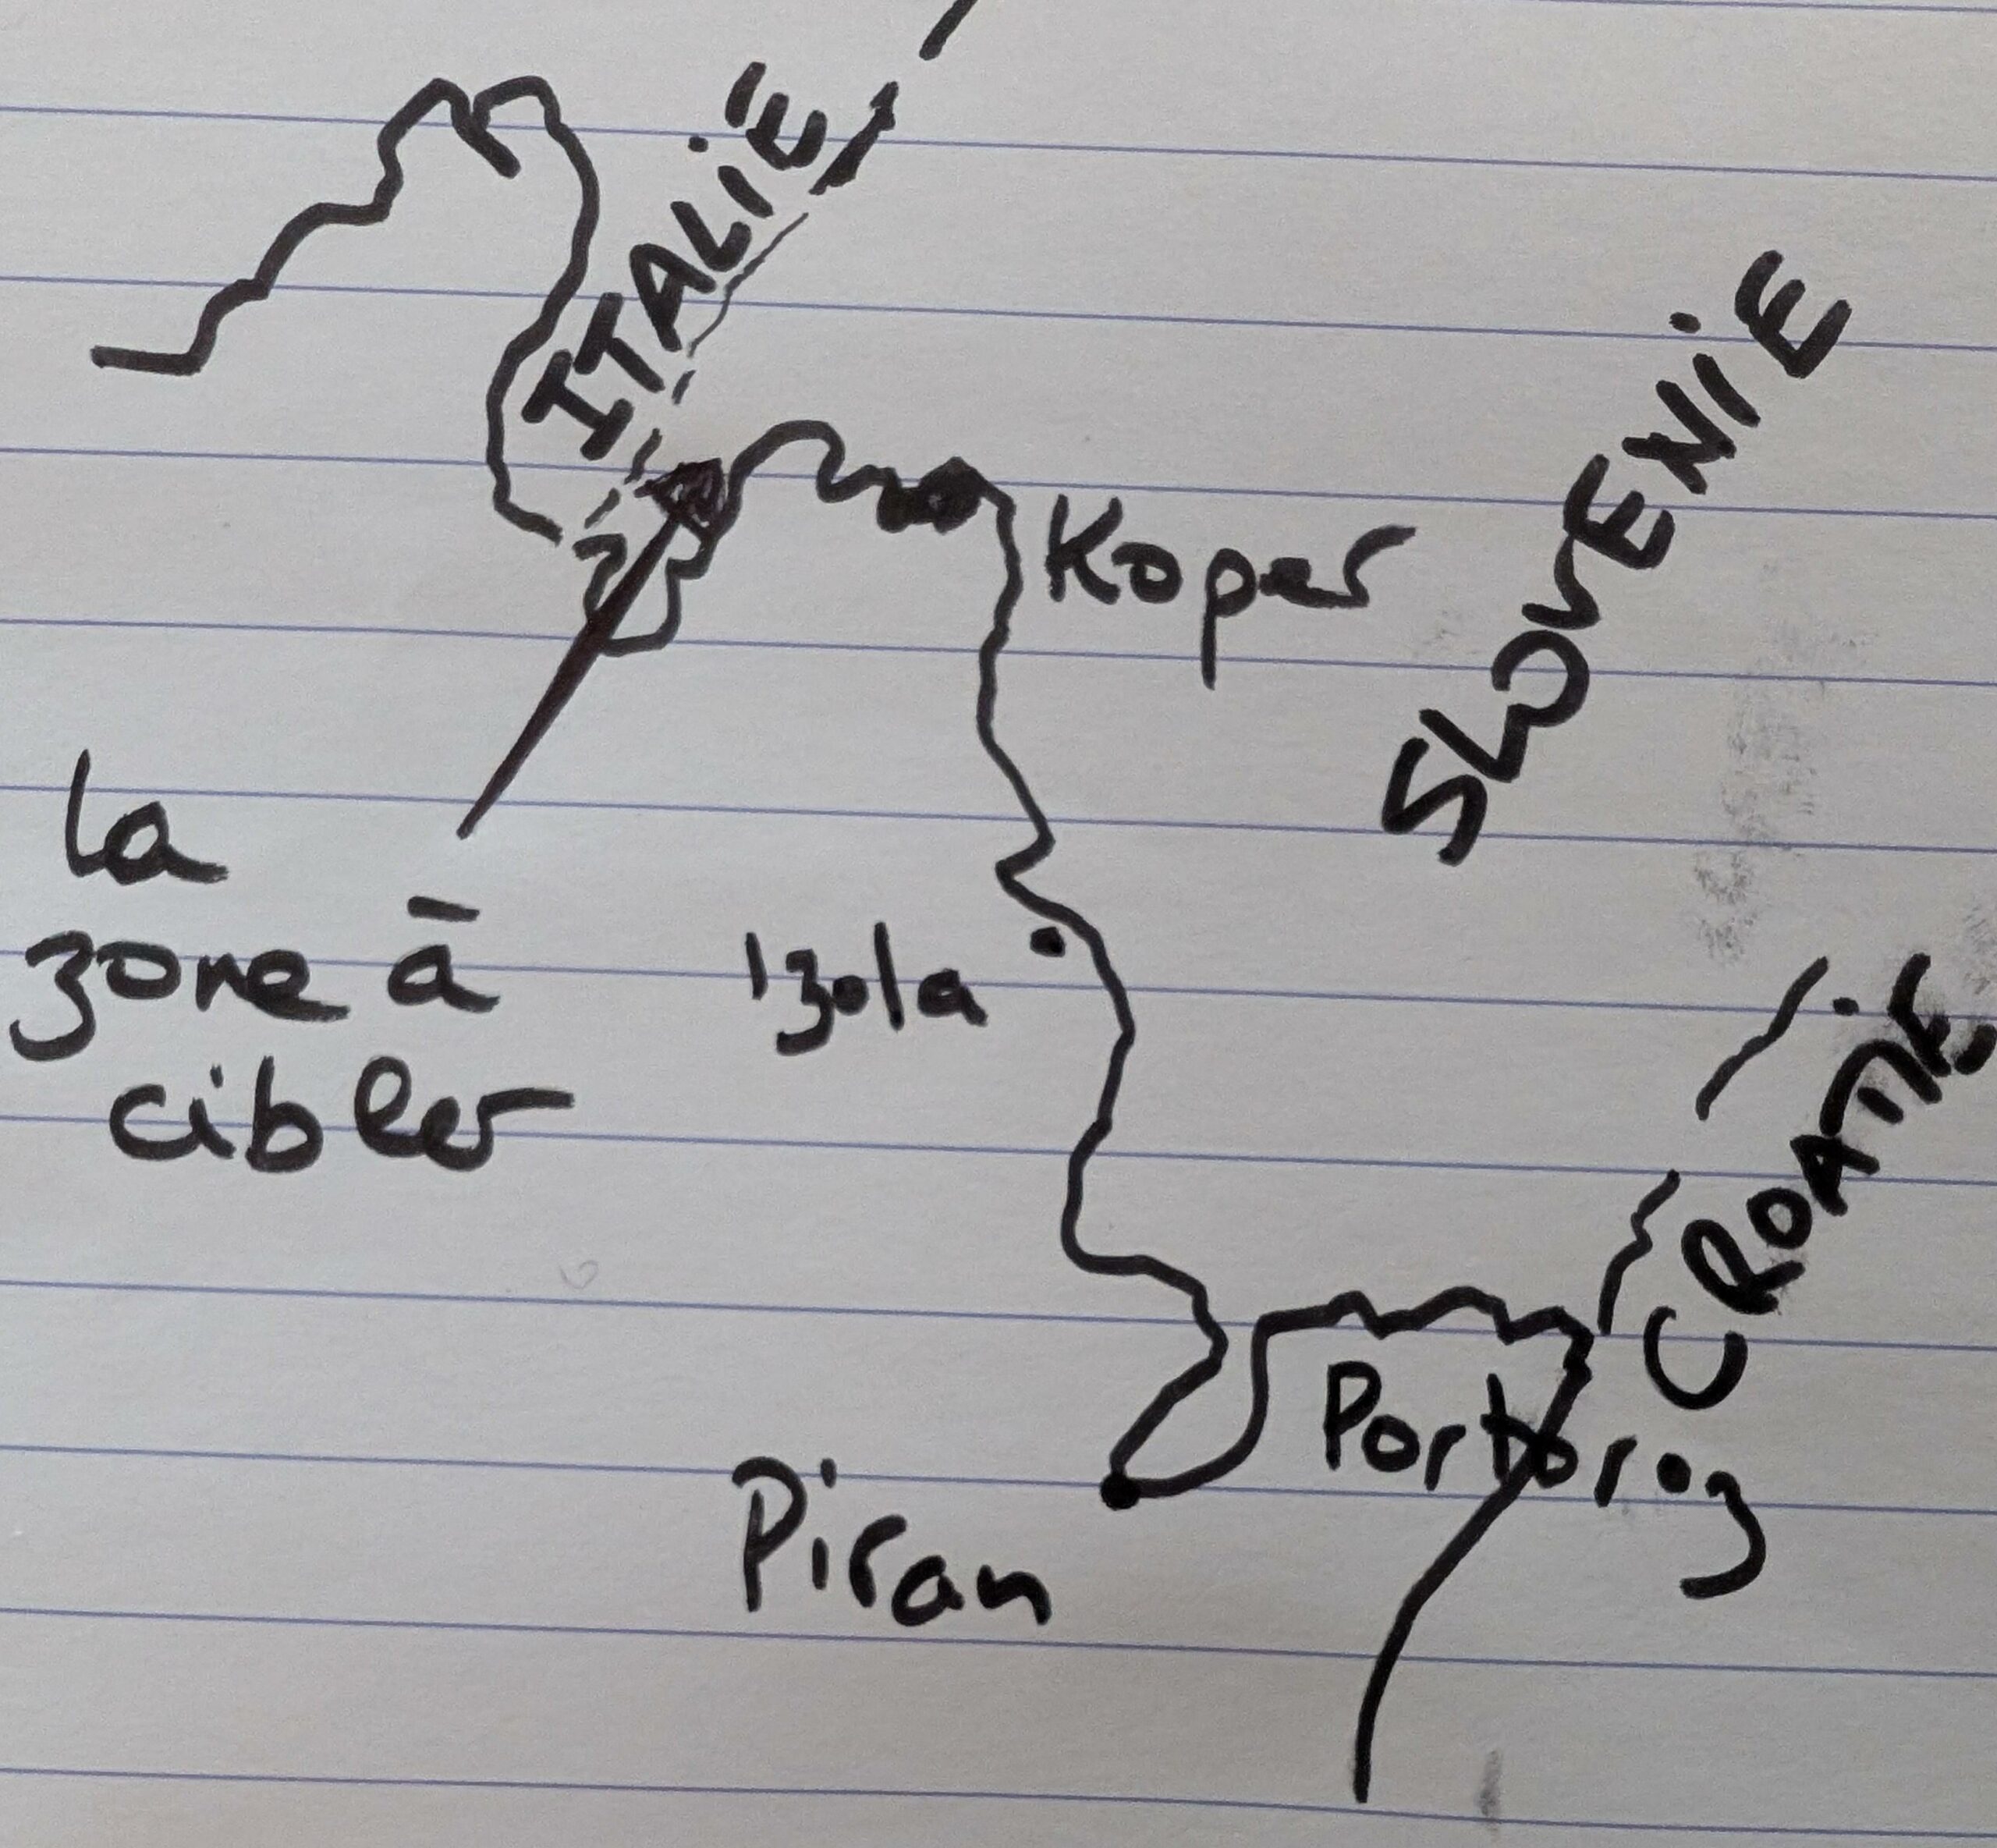 ITALIE
SLOVENIE
Koper
la
zone ā
cibler
Izola
CROATIE
Portoroz
Piran